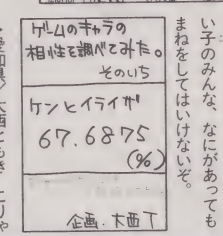 い子のみんな、なにがあっても
まねをしてはいけないぞ。
ゲームのキャラの
相性を調べてみた。
そのいち
ケンとイライザ
67.6875
(%)
企画.大西丁